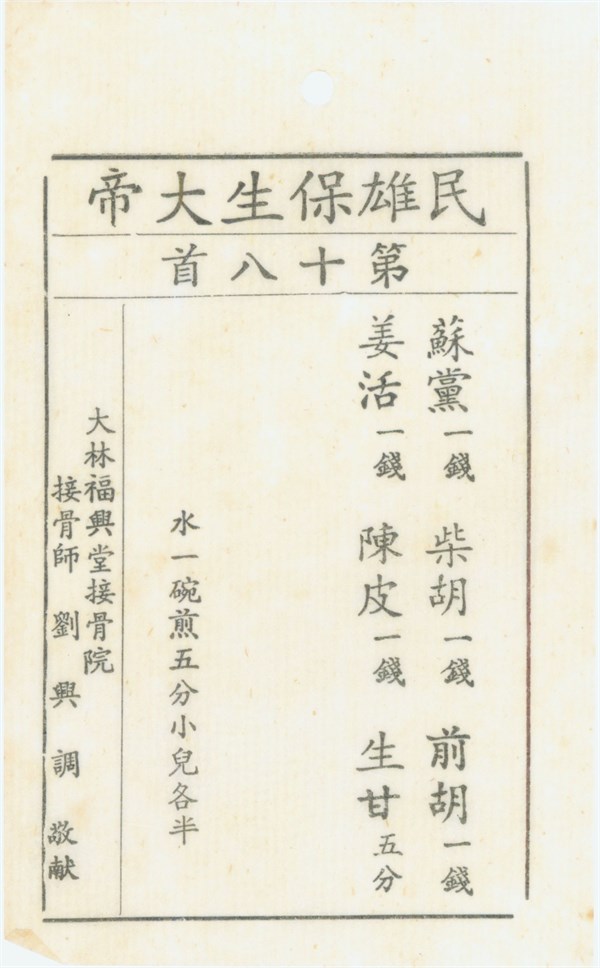 民雄保生大帝
第十八首
蘇黨一錢 柴胡一錢 前胡一錢
姜活一錢 陳皮一錢 生甘五分
水一碗煎五分小兒各半
大林福興堂接骨院
接骨師 劉興調 敬献